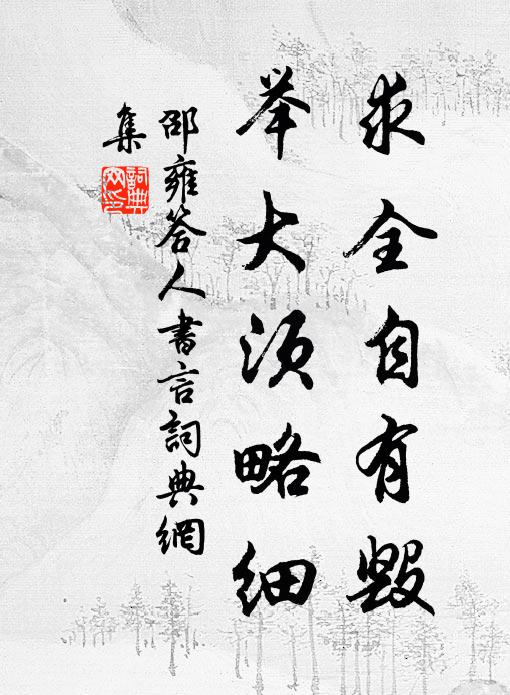 求全自有毁
举大须略细
邵雍答人書言詞典網
集
詞典网印